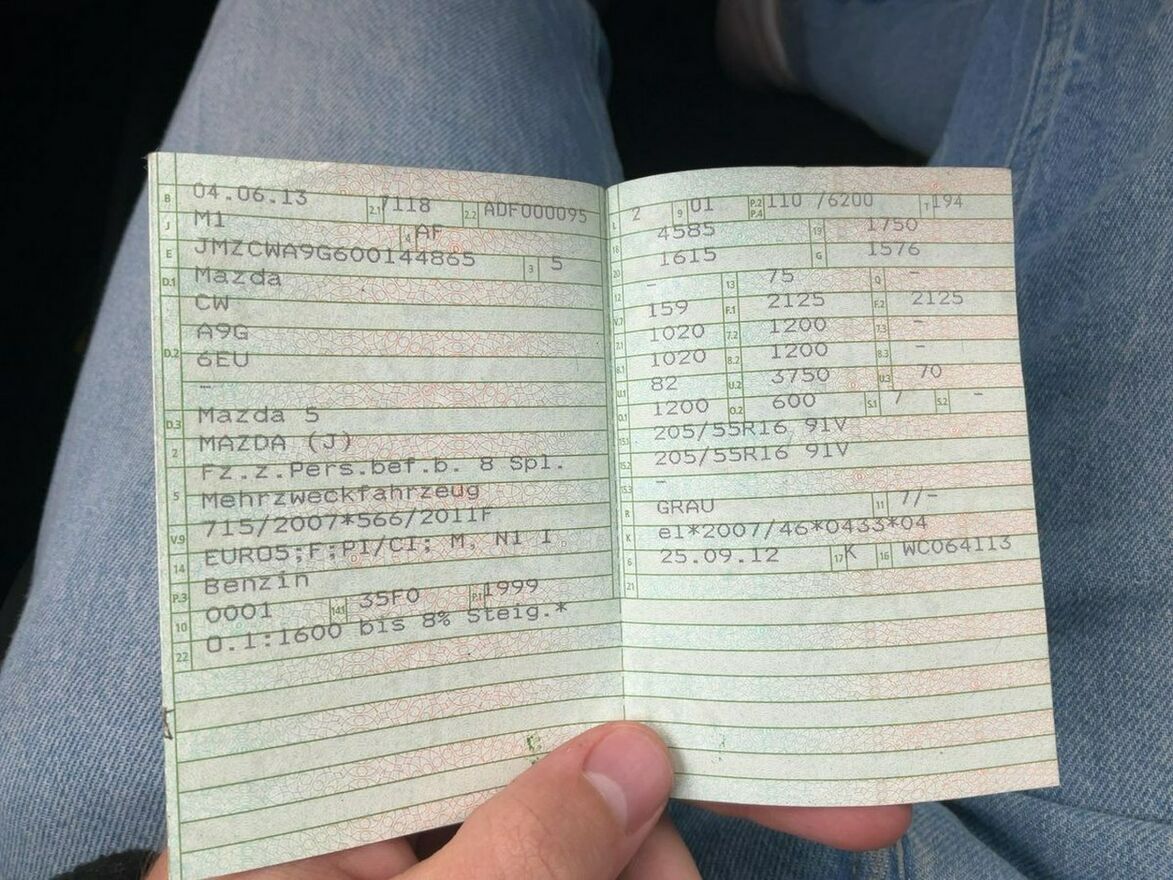 B 04.06.13 2.1 7118 2.2 ADF000095
J M1 4 AF
E JMZCWA9G600144865 3 5
D.1 Mazda
CW
D.2 A9G
6EU
–
D.3 Mazda 5
2 MAZDA (J)
Fz.z.Pers.bef.b. 8 Spl.
5 Mehrzweckfahrzeug
V.9 715/2007*566/2011F
14 EURO5;F;PI/CI; M, N1 I
P.3 Benzin
10 0001 14.1 35F0 P.1 1999
22 O.1:1600 bis 8% Steig.*
L 2 9 01 P.2 P.4 110 /6200 T 194
18 4585 19 1750
20 1615 G 1576
12 – 13 75 Q –
V.7 159 F.1 2125 F.2 2125
7.1 1020 7.2 1200 7.3 –
8.1 1020 8.2 1200 8.3 –
U.1 82 U.2 3750 U.3 70
O.1 1200 O.2 600 S.1 7 S.2 –
15.1 205/55R16 91V
15.2 205/55R16 91V
15.3 –
R GRAU 11 7/–
K e1*2007/46*0433*04
6 25.09.12 17 K 16 WC064113
21